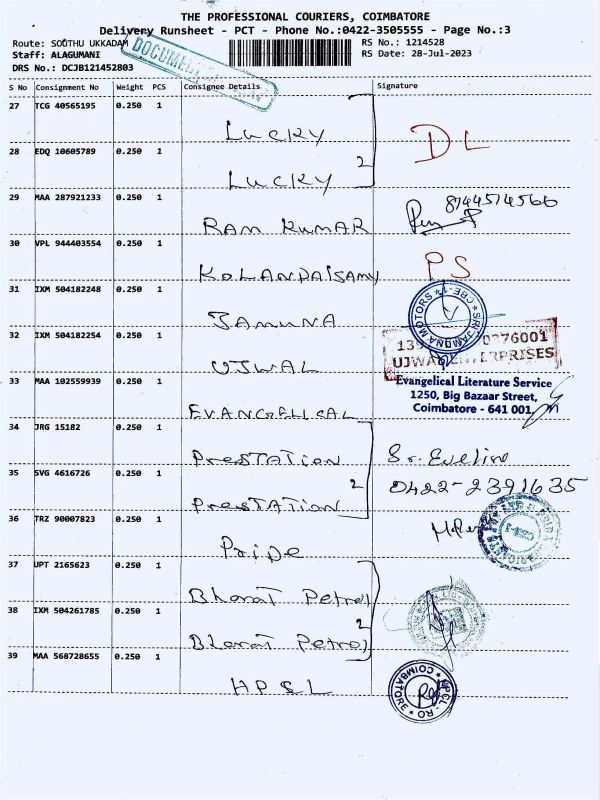 THE PROFESSIONAL COURIERS, COIMBATORE
Delivery Runsheet - PCT - Phone No.:0422-3505555 - Page No.:3
Route: SOUTHU UKKADAM RS No.: 1214528
Staff: ALAGUMANI RS Date: 28-Jul-2023
DRS No.: DCJB121452803
DOCUMENT
S No Consignment No Weight PCS Consignee Details Signature
27 TCG 40565195 0.250 1
LUCKY
DL
28 EDQ 10605789 0.250 1
2
LUCKY
29 MAA 287921233 0.250 1
8144514566
RAM KUMAR
30 VPL 944403554 0.250 1
PS
KOLANDAISAMY
31 IXM 504182248 0.250 1
SRI JAMUNA MOTORS CBE-1
JAMUNA
32 IXM 504182254 0.250 1
0276001
UJWAL ENTERPRISES
UJWAL
33 MAA 102559939 0.250 1
Evangelical Literature Service
1250, Big Bazaar Street,
Coimbatore - 641 001.
EVANGELICAL
34 JRG 15182 0.250 1
PresTATion
Sr. Eveline
35 SVG 4616726 0.250 1
2
0422-2391635
PresTATion
36 TRZ 90007823 0.250 1
Pride
37 UPT 2165623 0.250 1
Bharat Petrol
38 IXM 504261785 0.250 1
2
Bharat Petrol
39 MAA 568728655 0.250 1
HPCL
HPCL - RO COIMBATORE